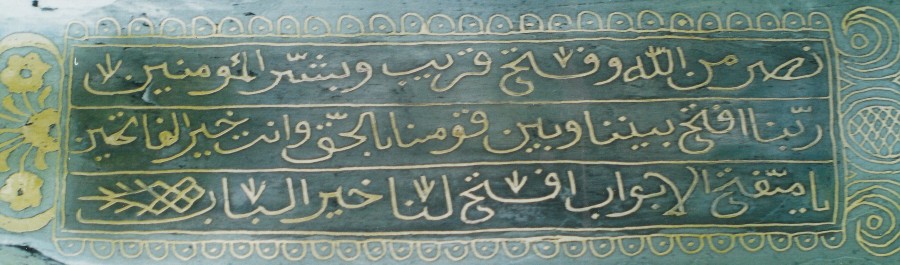 نصر من الله وفتح قريب وبشّر المؤمنين
ربّنا افتح بيننا وبين قومنا بالحقّ وانت خير الفاتحين
يا متفّتح الابواب افتح لنا خير الباب